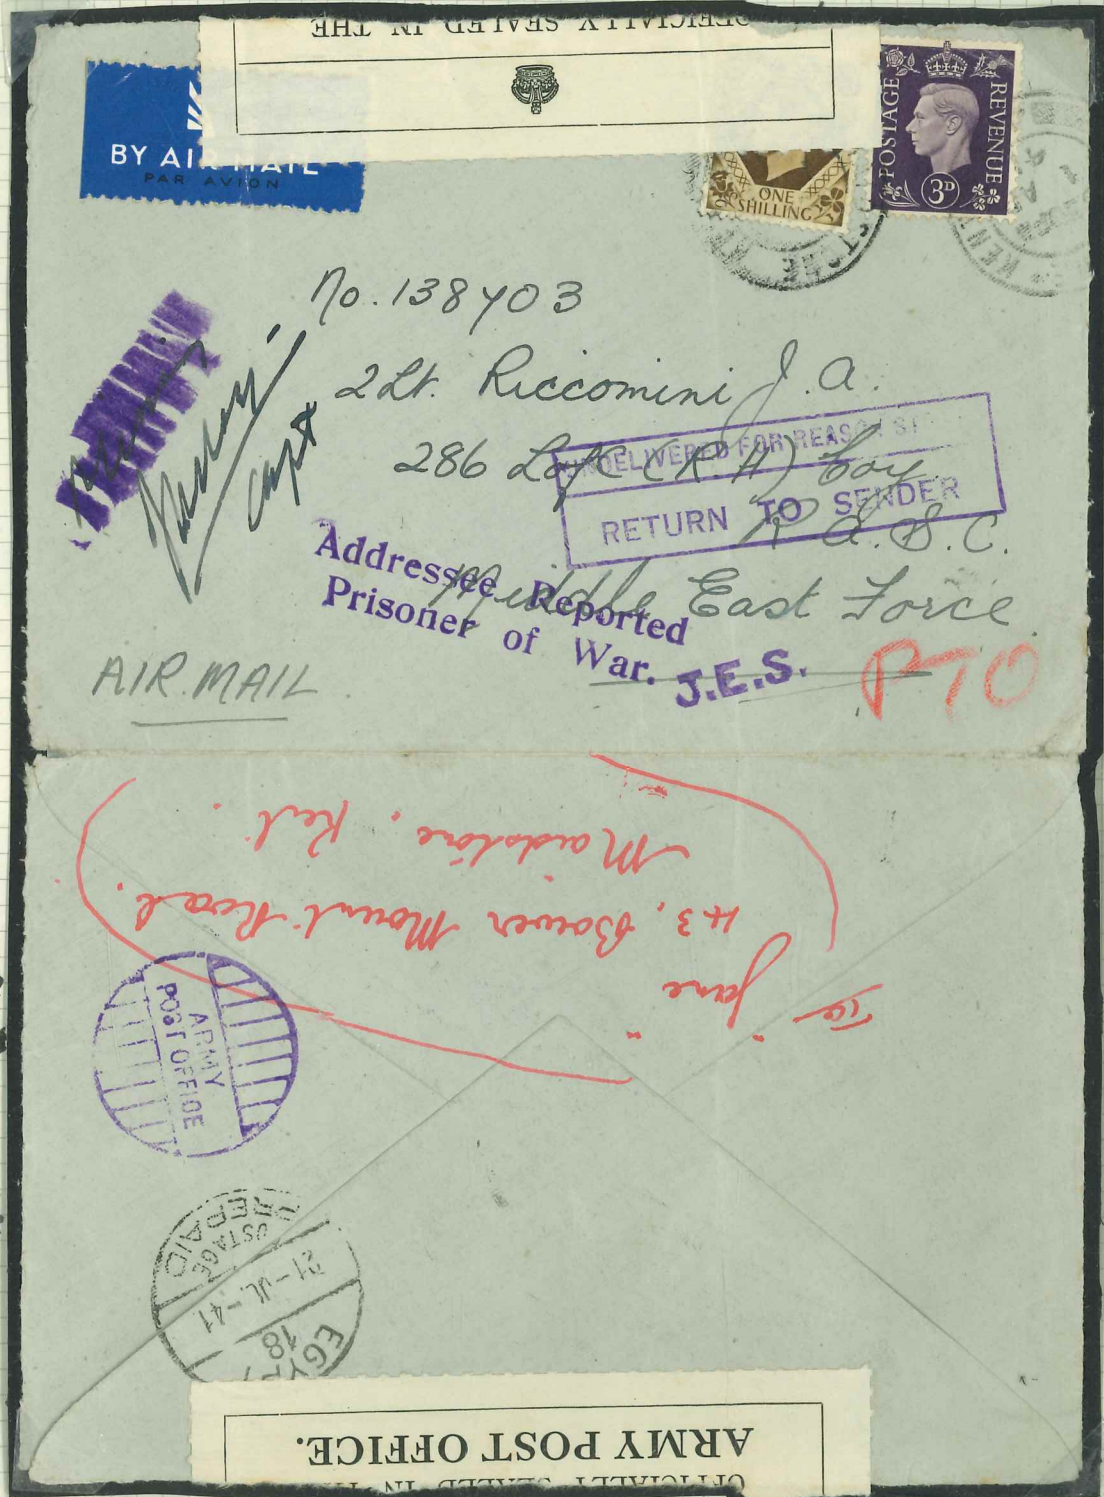 OFFICIALLY SEALED IN THE
BY AIR MAIL
PAR AVION
POSTAGE
REVENUE
3D
ONE
SHILLING
No. 138703
2Lt. Riccomini J. A.
286 L of C (R H) Coy
R. A. S. C.
Middle East Force
UNDELIVERED FOR REASON ST
RETURN TO SENDER
Capt
Addressee Reported
Prisoner of War.
J.E.S.
AIR MAIL
PTO
To "Jane"
43, Bower Mount Road.
Maidstone, Kent.
ARMY
POST OFFICE
EGYPT
18
21-JL.-41
POSTAGE
PREPAID
OFFICIALLY SEALED IN
ARMY POST OFFICE.